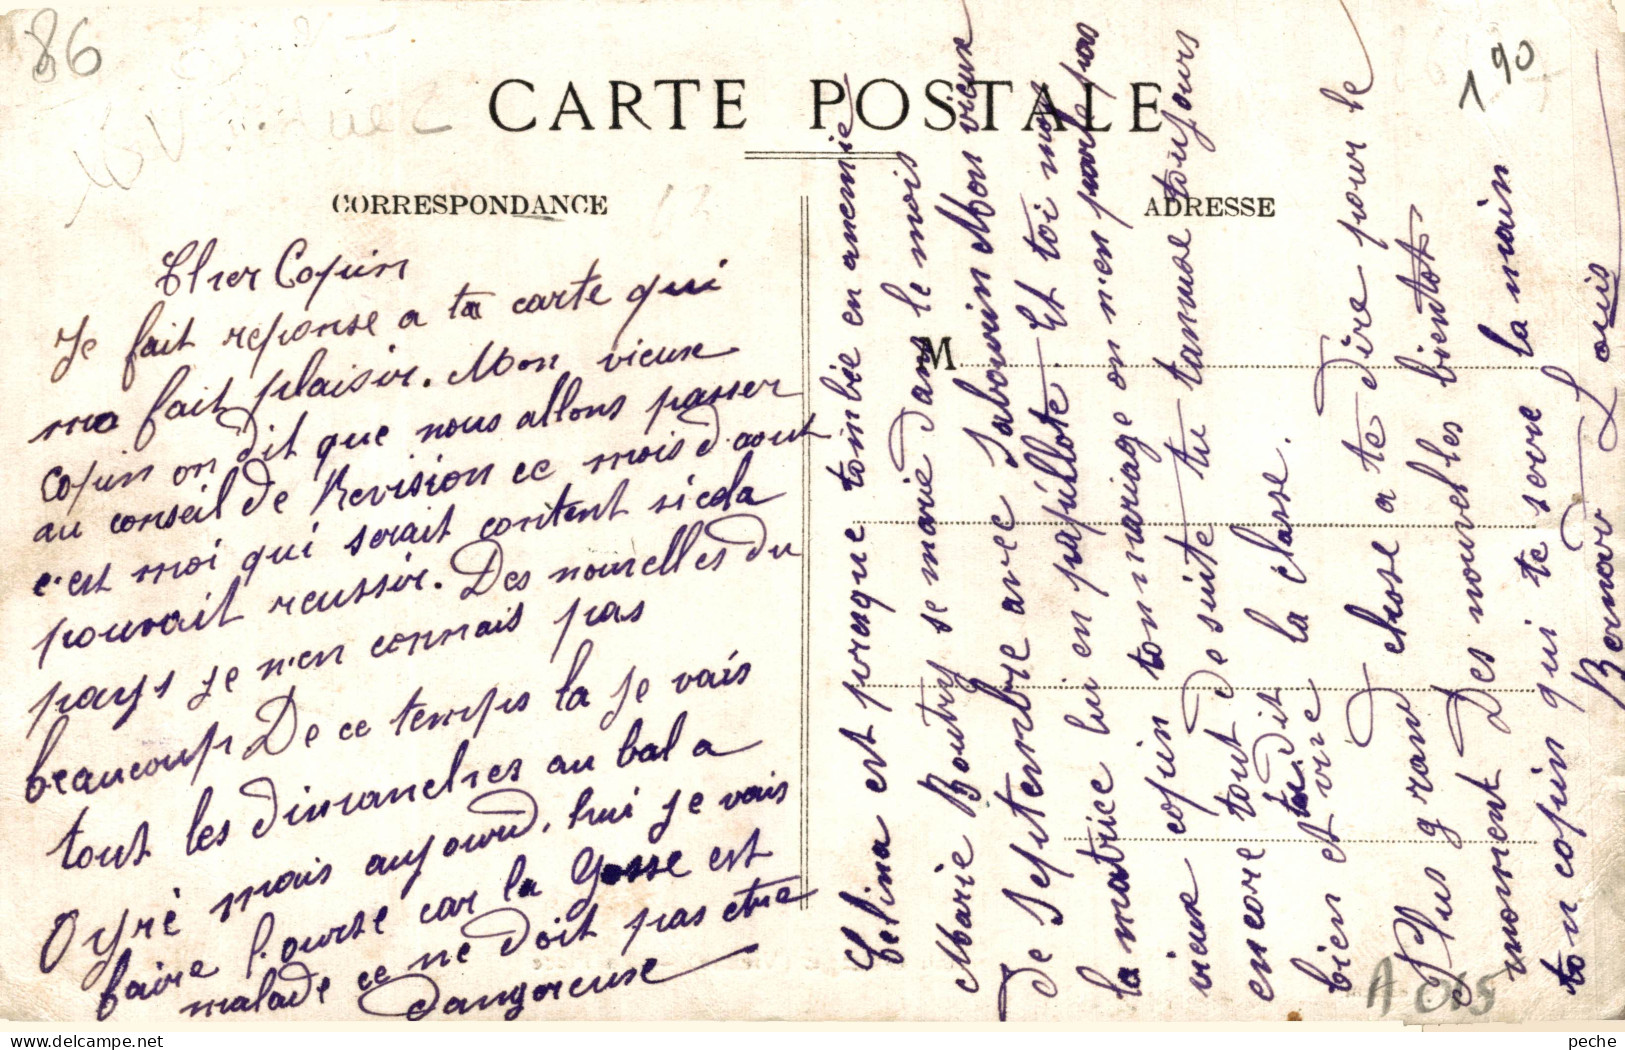 86
190
CARTE POSTALE
CORRESPONDANCE
ADRESSE
M
Cher Copin
Je fait reponse a ta carte qui
ma fait plaisir. Mon vieux
copin on dit que nous allons passer
au conseil de Revision ce mois d'aout
c'est moi qui serait content si cela
pouvait reussir. Des nouvelles du
pays je n'en connais pas
beaucoup De ce temps la je vais
tout les dimanches au bal a
Oyré mais aujourd'hui je vais
faire l'ourse car la Gosse est
malade ce ne doit pas etre
dangereuse
Celina est presque tombée en anemie
Marie Boutry se marie dans le mois
de Septembre avec Sabourin Mon vieux
la matrice lui en papillote. Et toi mon
vieux copin ton mariage on n'en parle pas
encore tout de suite tu tannuse toujours
bien et vive la classe.
Plus grand chose a te dire pour le
moment Des nouvelles bientot
ton copin qui te serre la main
Bernard Louis
A 015
peche